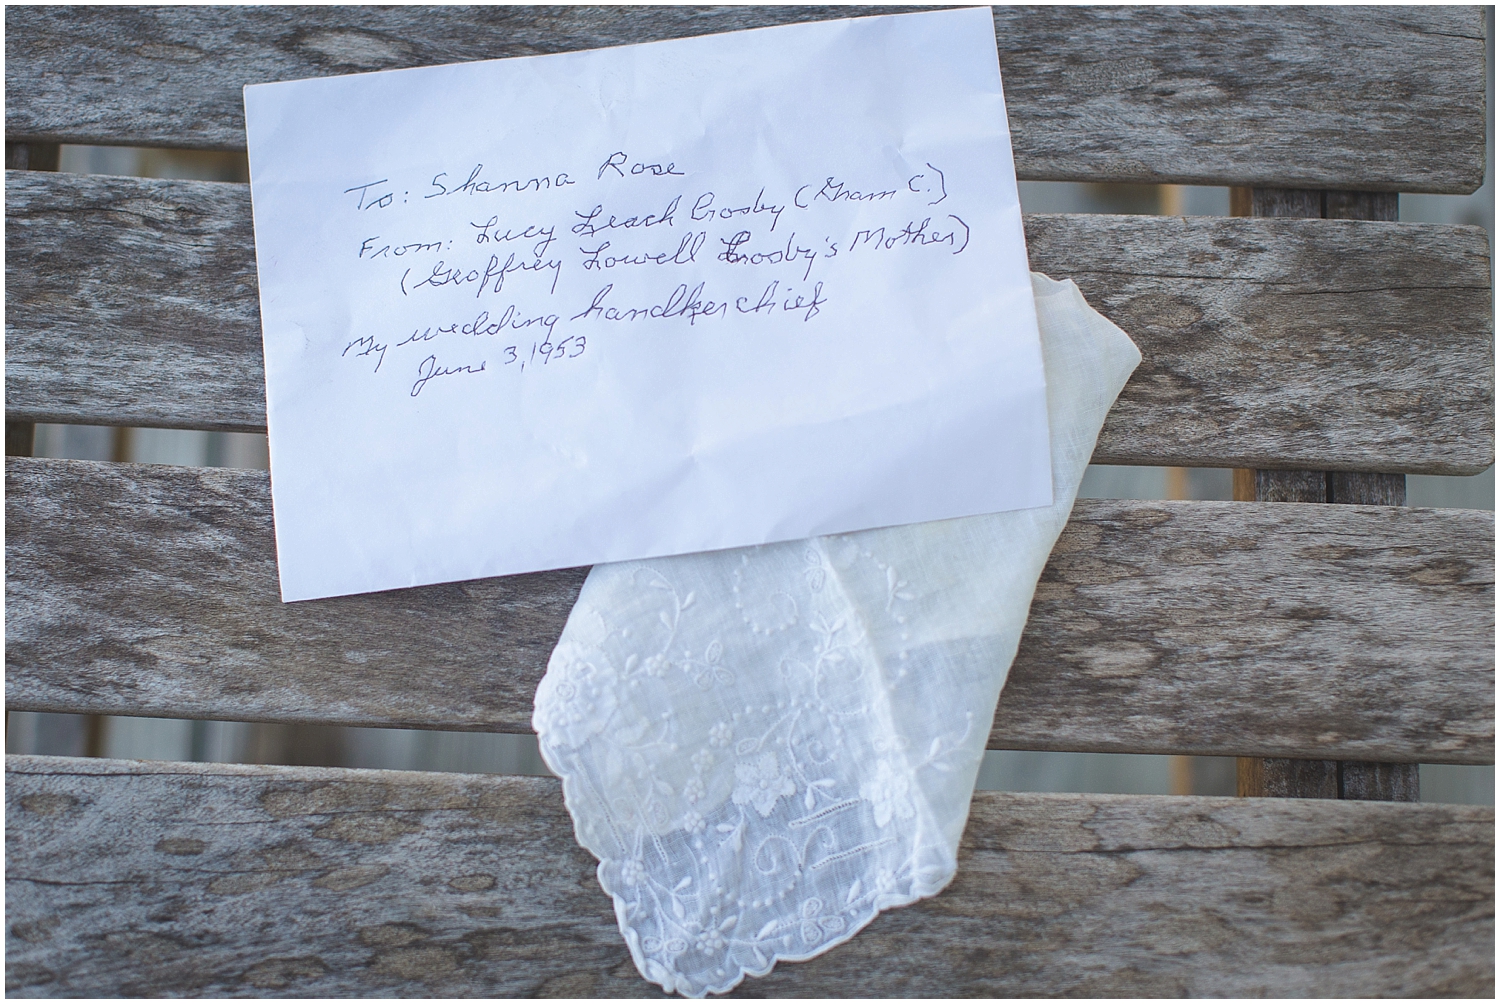 To: Shanna Rose
From: Lucy Leach Crosby (Gram C.)
(Geoffrey Lowell Crosby's Mother)
My wedding handkerchief
June 3, 1953